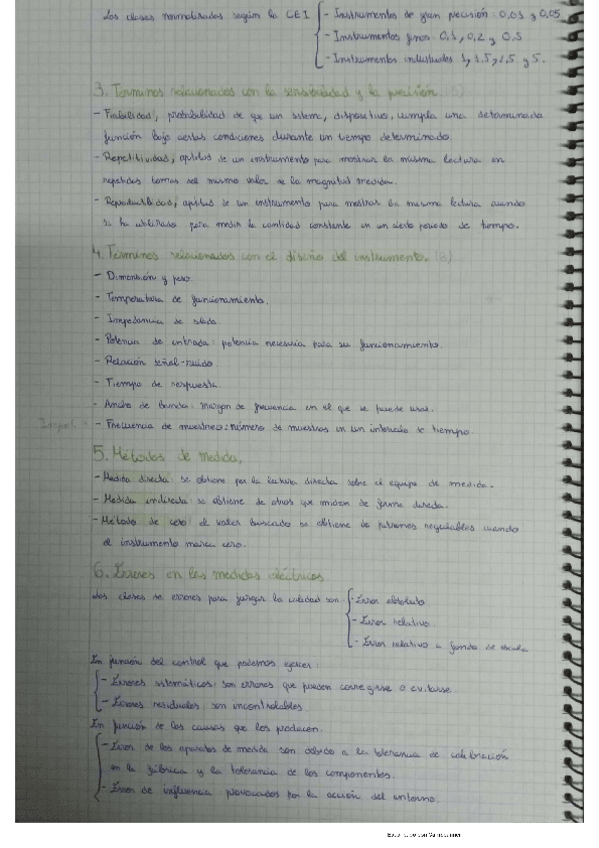 Las clases normalizadas según la CEI
- Instrumentos de gran precisión: 0,01 y 0,05
- Instrumentos finos: 0,1, 0,2 y 0,5
- Instrumentos industriales: 1, 1.5, 2,5 y 5.
3. Terminos relacionados con la sensibilidad y la precisión.
- Fiabilidad, probabilidad de que un sistema, dispositivo, cumpla una determinada
función bajo ciertas condiciones durante un tiempo determinado.
- Repetitividad, aptitud de un instrumento para mostrar la misma lectura en
repetidas tomas del mismo valor de la magnitud medida.
- Reproductibidad, aptitud de un instrumento para mostrar la misma lectura cuando
se ha utilizado para medir la cantidad constante en un cierto periodo de tiempo.
4. Términos relacionados con el diseño del instrumento. (8)
- Dimensión y peso.
- Temperatura de funcionamiento.
- Impedancia de salida.
- Potencia de entrada: potencia necesaria para su funcionamiento.
- Relación señal-ruido.
- Tiempo de respuesta.
- Ancho de banda: margen de frecuencia en el que se puede usar.
- Frecuencia de muestreo: número de muestras en un intervalo de tiempo.
5. Métodos de medida.
- Medida directa: se obtiene por la lectura directa sobre el equipo de medida.
- Medida indirecta: se obtiene de otros que miden de forma directa.
- Método de cero: el valor buscado se obtiene de patrones regulables cuando
el instrumento marca cero.
6. Errores en las medidas eléctricas
Las clases de errores para juzgar la calidad son:
- Error absoluto
- Error relativo.
- Error relativo a fondo de escala
En función del control que podemos ejercer:
- Errores sistemáticos: son errores que pueden corregirse o evitarse.
- Errores residuales: son incontrolables.
En función de las causas que los producen.
- Error de los aparatos de medida son debido a la tolerancia de calibración
en la fábrica y la tolerancia de los componentes.
- Error de influencia provocados por la acción del entorno.